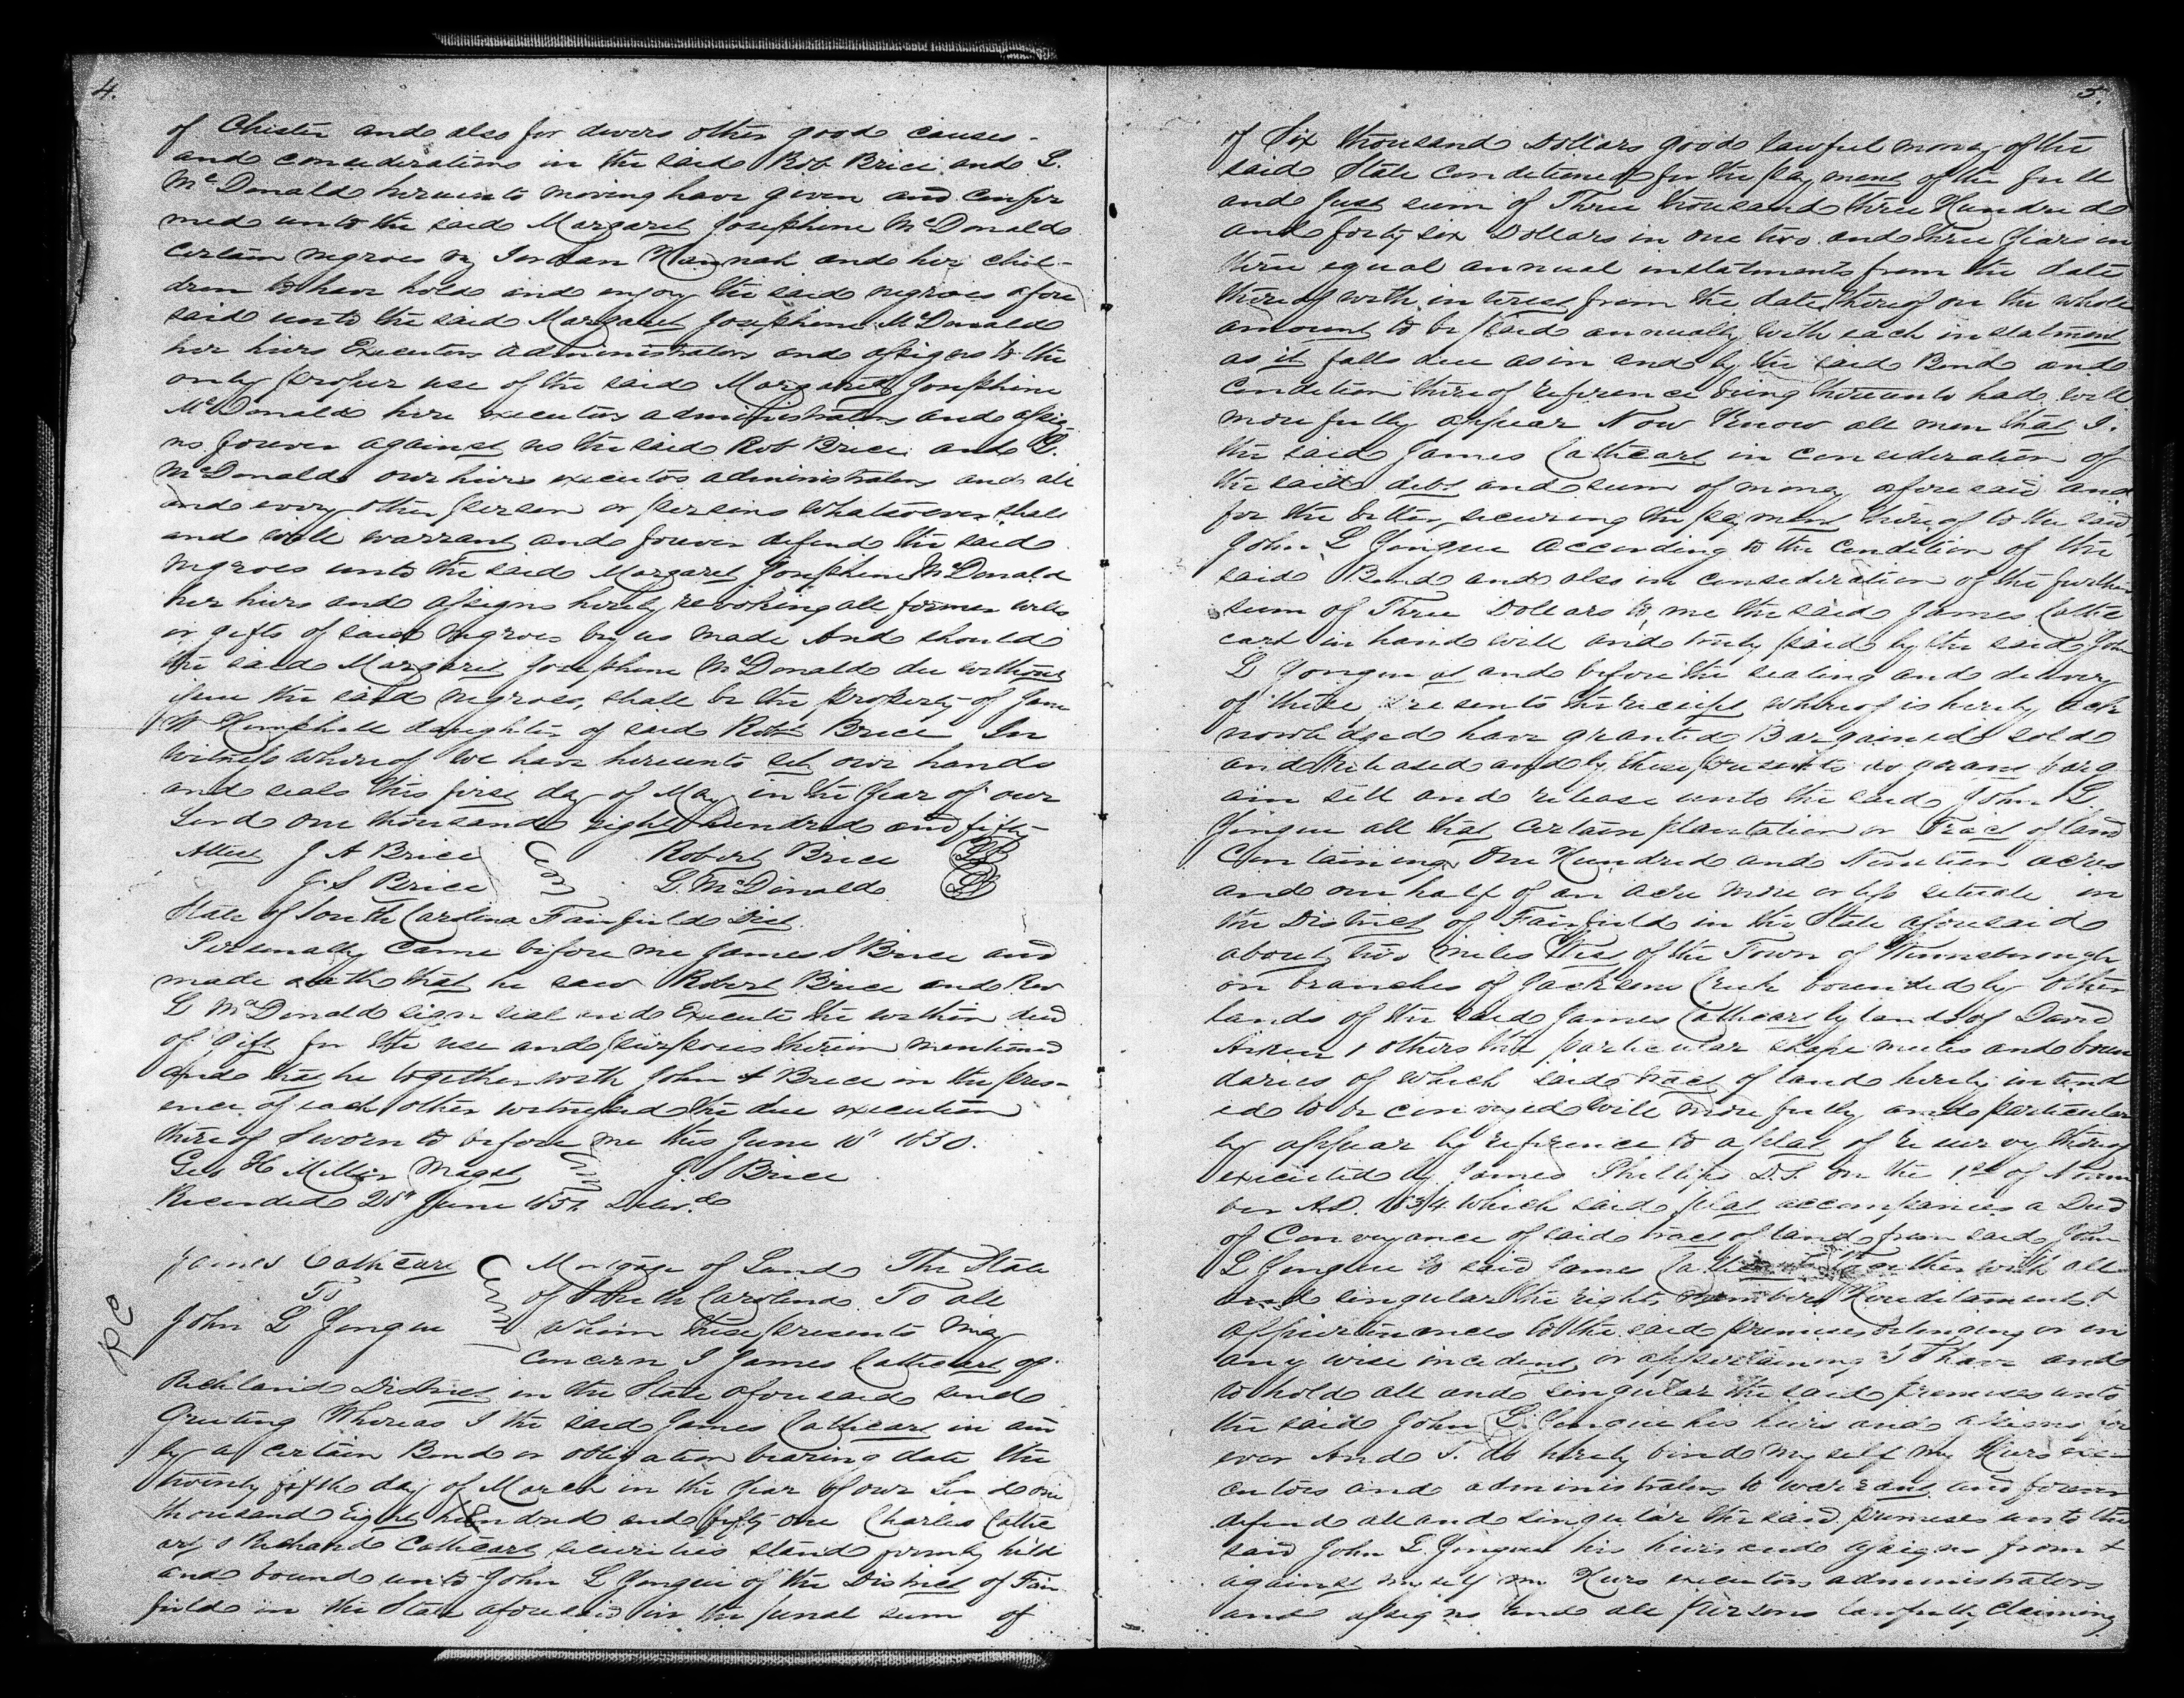 4.
of Chester and also for divers other good causes -
and considerations in the said Rob Brice and L.
McDonald hereunto moving have given and confir
med unto the said Margaret Josephine McDonald
certain negroes viz Jordan Hannah and her chil-
dren to have hold and enjoy the said negroes afore
said unto the said Margaret Josephine McDonald
her hiers Executors administrators and assigns to the
only proper use of the said Margaret Josephine
McDonald here executors administrators and assig-
ns forever against us the said Rob Brice and L.
McDonald our hiers executors administrators and all
and every other person or persons whatsoever shall
and will warrant and forever defend the said
negroes unto the said Margaret Josephine McDonald
her hiers and assigns hereby revoking all former wills
or gifts of said negroes by us made And should
the said Margaret Josephine McDonald die without
issue the said negroes, shall be the property of Jane
W Hemphill daughter of said Robt Brice In
witness whereof we have hereunto set our hands
and seals this first day of May in the year of our
Lord one thousand eight hundred and fifty
Attest J A Brice Robert Brice LS
J. S Brice L. McDonald LS
State of South Carolina Fairfield Dist.
Personally came before me James S Brice and
made oath that he saw Robert Brice and Rev
L McDonald sign seal and Execute the within deed
of gift for the use and purposes therein mentioned
and that he together with John A Brice in the pres-
ence of each other witnessed the due execution
thereof Sworn to before me this June 10" 1850.
Geo H Miller Magst J. S Brice
Recorded 28" June 1851 Delivd
James Cathcart Mortgage of Land The State
To of South Carolina To all
John L Yongue whom these presents may
RC
concern I James Cathcart of
Richland District in the State aforesaid send
Greeting Whereas I the said James Cathcart in and
by a certain Bond or obligation bearing date the
twenty fifth day of March in the year of our Lord one
thousand Eight hundred and fifty one Charles Cathc
art & Richard Cathcart securities stand firmly held
and bound unto John L Yongue of the District of Fair
field in the State aforesaid in the penal sum of
5.
of Six thousand Dollars good lawful money of the
said State conditioned for the payment of the full
and just sum of Three thousand three Hundred
and forty six Dollars in one two and three years in
three equal annual instalments from the date
thereof with interest from the date thereof on the whole
amount to be paid annually with each instalment
as it falls due as in and by the said Bond and
condition thereof reference being thereunto had will
more fully appear Now Know all men that I.
the said James Cathcart in consideration of
the said debt and sum of money aforesaid and
for the better securing the payment thereof to the said
John L Yongue According to the Condition of the
said Bond and also in consideration of the further
sum of Three Dollars to me the said James Cathc
cart in hand well and truly paid by the said John
L Yongue at and before the sealing and delivery
of these presents the receipt whereof is hereby ack
nowledged have granted Bargained sold
and released and by these presents do grant barg
ain sell and release unto the said John L.
Yongue all that certain plantation or Tract of land
Containing One Hundred and Nineteen acres
and one half of an acre more or less situate in
the District of Fairfield in the State aforesaid
about two miles West of the Town of Winnsborough
on branches of Jacksons Creek bounded by other
lands of the said James Cathcart by lands of David
Aiken & others the particular shape metes and boun
daries of which said tract of land hereby intend
ed to be conveyed will more fully and particular
ly appear by reference to a plat of resurvey thereof
executed by James Phillips D.S. on the 1st of Novem
ber A.D. 1834 which said plat accompanies a Deed
of Conveyance of said tract of land from said John
L Yongue to said James Cathcart Together with all
and singular the rights, members Hereditaments &
appurtenances to the said premises belonging or in
any wise incident or appertaining To have and
to hold all and singular the said premises unto
the said John L. Yongue his heirs and assigns for
ever And I. do hereby bind myself my Hiers exe
cutors and administrators to warrant and forever
defend all and singular the said premises unto the
said John L. Yongue his heirs and assigns from &
against myself my Hiers executors administrators
and assigns and all persons lawfully claiming